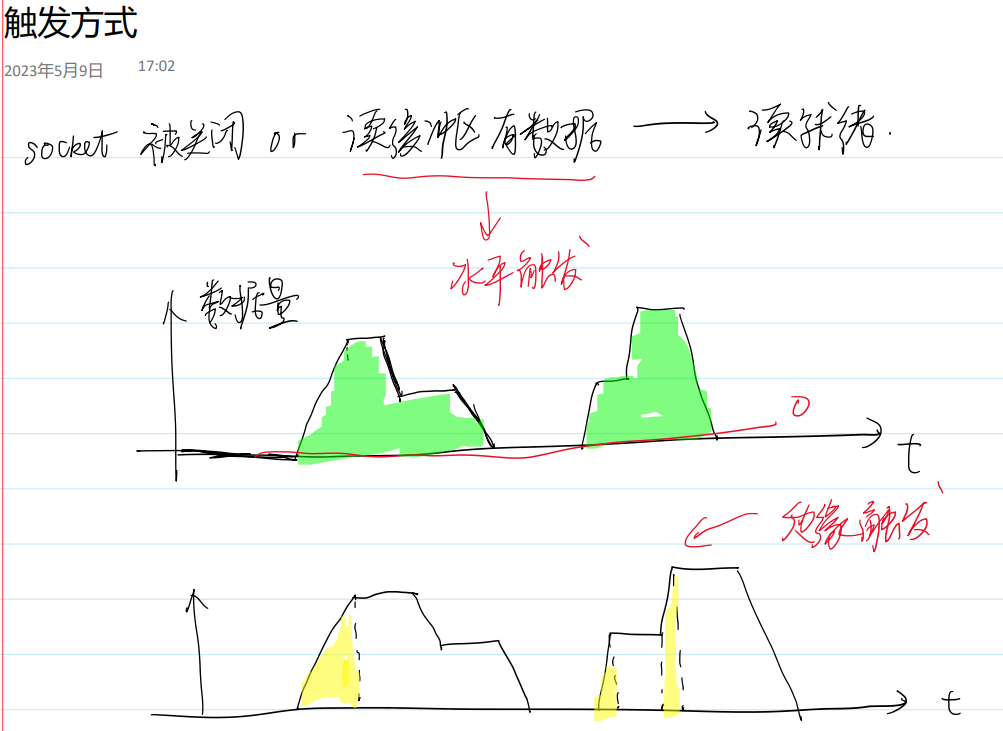 触发方式
2023年5月9日 17:02
socket 被关闭 or 读缓冲区有数据 → 读就绪.
水平触发
数据量
0
t
边缘触发
t